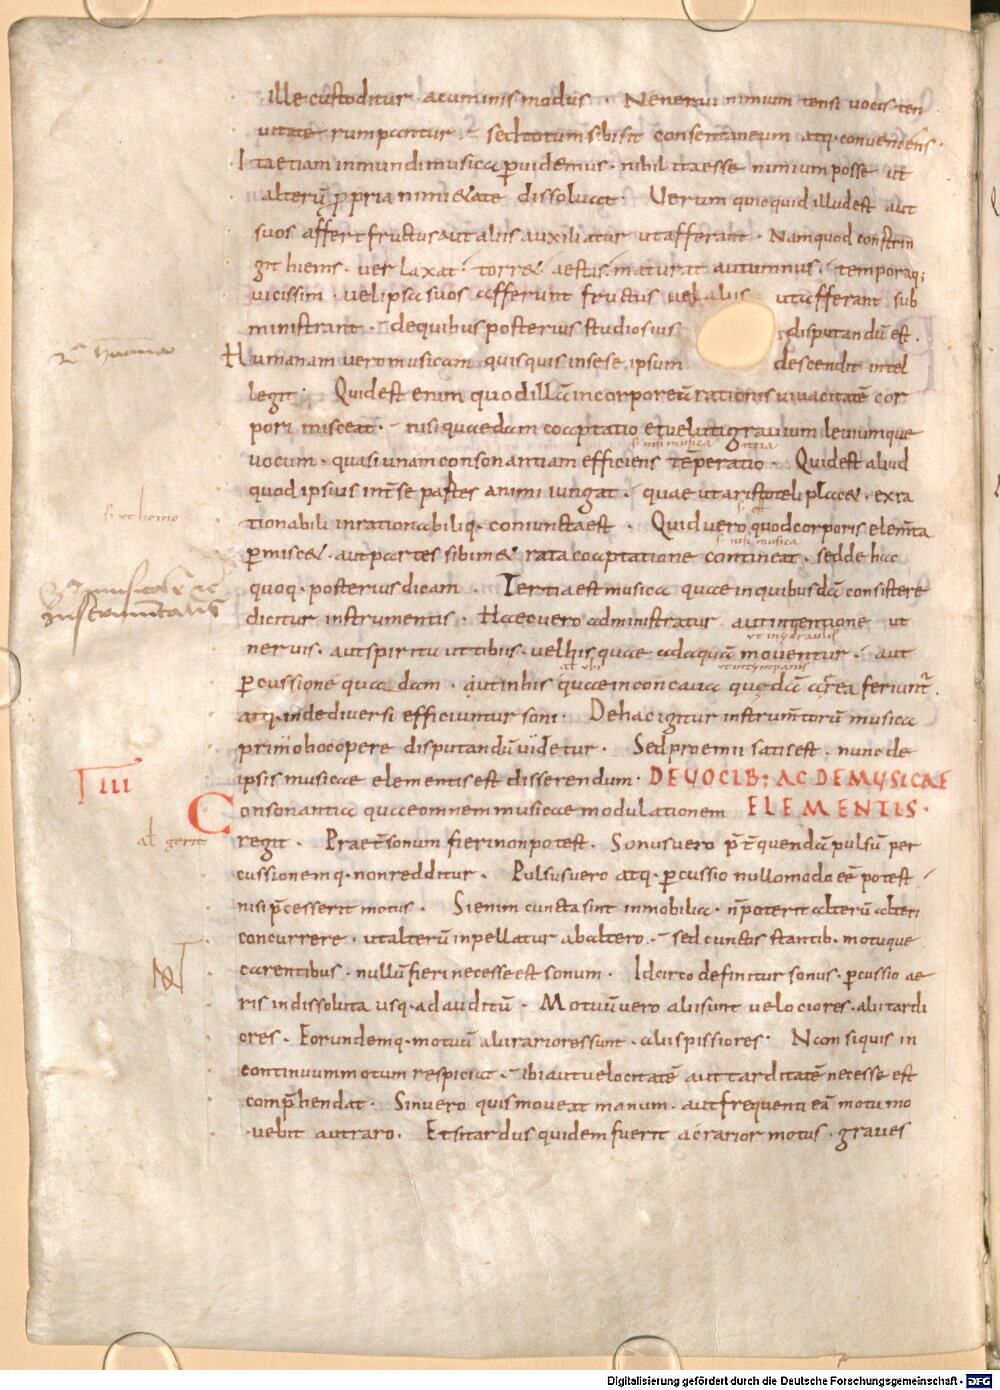 ille custoditur acuminis modus · Ne nerui nimium tensi uocis ten
uitate rumpantur · sed totum sibi sit consentaneum atq· conueniens ·
Ita etiam in mundi musica puidemus · nihil ita esse nimium posse ut
alterū propria nimi&ate dissoluat · Uerum quicquid illud est aut
suos affert fructus aut aliis auxiliatur ut afferant · Nam quod constrin
git hiems · uer laxat · torr& aestus · maturat autumnus · temporaq;
uicissim · uel ipsa suos afferunt fructus uel aliis ut afferant sub
ministrant · de quibus posterius studiosius disputandū est ·
2ᵃ humana
Humanam uero musicam quisquis in sese ipsum descendit intel
legit · Quid est enim quod illā incorporeā rationis uiuacitatē cor
pori misceat · nisi quaedam coaptatio et ueluti grauium leuiumque
si nisi musica
uocum · quasi unam consonantiam efficiens tēperatio · Quid est aliud
quod ipsius int̄ se partes animi iungat · quae ut aristoteli plac& · ex ra
si ut homo
tionabili inrationabiliq· coniuncta est · Quid uero quod corporis elem̄ta
s· nisi musica
pmisc& · aut partes sibim& rata coaptatione contineat · sed de hac
quoq· posterius dicam · Tertia est musica quae in quibusdā consistere
3ᵃ musica
instrumentalis
dicitur instrumentis · Haec uero administratur aut intentione ut
ut in ydraulis
neruis · aut spiritu ut tibiis · uel his quae ad aquā mouentur · aut
at ubi ut in tympanis
pcussione quadam · aut in his quae in concaua quędā aerea feriunt̄ ·
atq· inde diuersi efficiuntur soni · De hac igitur instrum̄torū musica
primū hoc opere disputandū uidetur · Sed proemii satis est · nunc de
ipsis musicae elementis est disserendum · DE UOCIB; AC DE MUSICAE
III
Consonantia quae omnem musicae modulationem ELEMENTIS ·
at gerit
regit · Praet̄ sonum fieri non potest · Sonus uero p̄t̄ quendā pulsū per
cussionemq· non redditur · Pulsus uero atq· pcussio nullo modo eē potest
nisi p̄cesserit motus · Si enim cuncta sint inmobilia · n̄ poterit alterū alteri
concurrere · ut alterū inpellatur ab altero · sed cunctis stantib· motuque
N
carentibus · nullū fieri necesse est sonum · Idcirco definitur sonus · pcussio ae
ris indissoluta usq· ad auditū · Motuū uero alii sunt uelociores · alii tardi
ores · Eorundemq· motuū alii rariores sunt · alii spissiores · Nam si quis in
continuum motum respiciat · ibi aut uelocitatē aut tarditatē necesse est
comp̄hendat · Sin uero quis moueat manum · aut frequenti eā motu mo
uebit aut raro · Et si tardus quidem fuerit ac rarior motus · graues
Digitalisierung gefördert durch die Deutsche Forschungsgemeinschaft - DFG